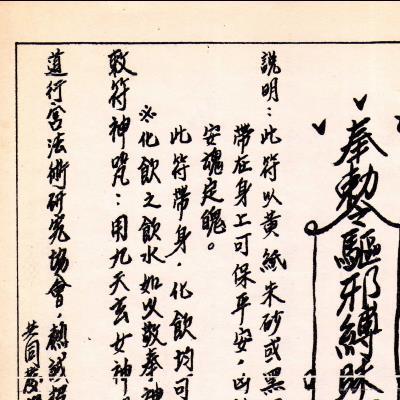 奉勅令驅邪縛
說明：此符以黃紙朱砂或黑
帶在身上可保平安，凶
安魂定魄。
此符帶身，化飲均可
※化飲之飲水如以敕奉神
敕符神咒：用九天玄女神
道行宮法術研究協會，熱誠招
共同發